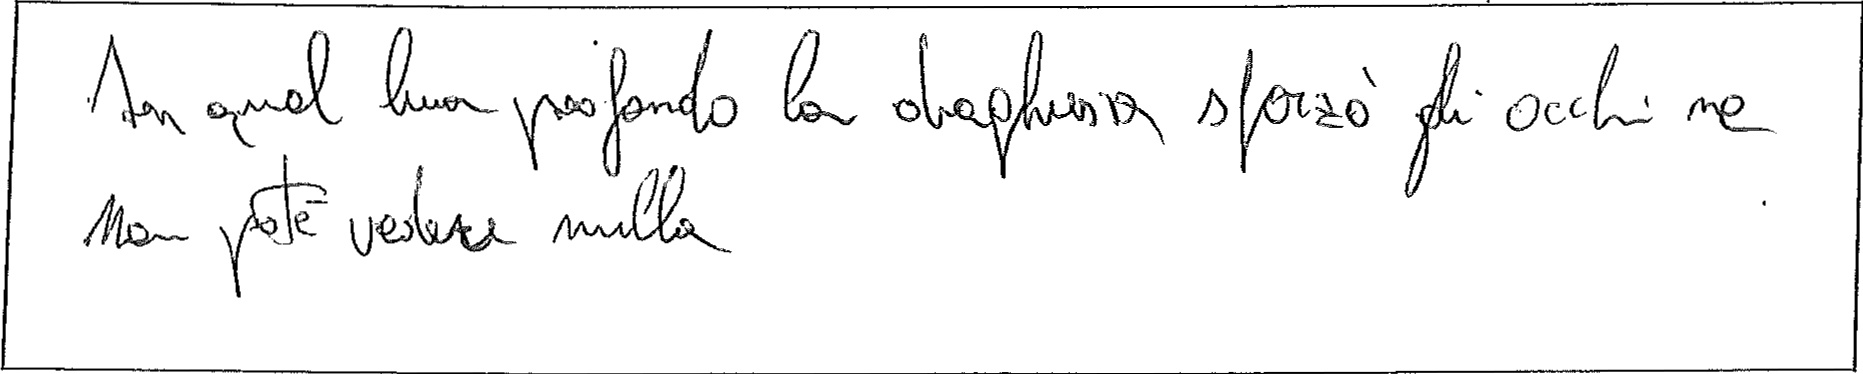 In quel buio profondo la draghessa sforzò gli occhi ma
Non potè vedere nulla